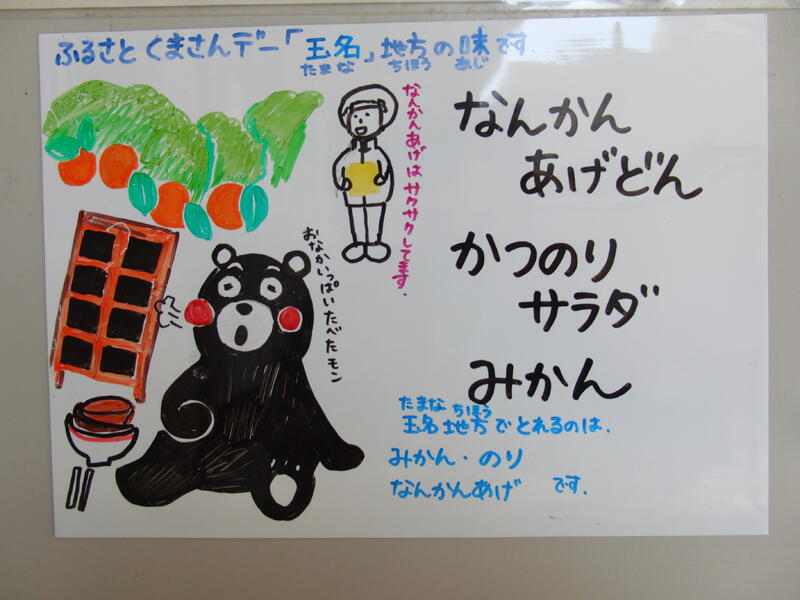 ふるさと くまさんデー「玉名」地方の味です.
たまな ちほう あじ
なんかんあげはサクサクしてます.
おなかいっぱいたべたモン
なんかん
あげどん
かつのり
サラダ
みかん
たまな ちほう
玉名地方でとれるのは.
みかん・のり
なんかんあげ です.